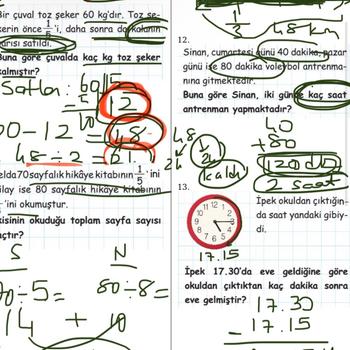 Bir çuval toz şeker 60 kg'dır. Toz şe-
kerin önce 1/5 'i, daha sonra da kalanın
yarısı satıldı.
Buna göre çuvalda kaç kg toz şeker
kalmıştır?
Satılan: 60 5
12
60 - 12 = 48
48 ÷ 2 =
elda 70 sayfalık hikâye kitabının 1/5 'ini
ilay ise 80 sayfalık hikaye kitabının
'ini okumuştur.
kisinin okuduğu toplam sayfa sayısı
açtır?
S N
70 ÷ 5 = 80 ÷ 8 =
14 + 10
1/3 48 km
12.
Sinan, cumartesi günü 40 dakika, pazar
günü ise 80 dakika voleybol antrenma-
nına gitmektedir.
Buna göre Sinan, iki günde kaç saat
antrenman yapmaktadır?
40
+ 80
120 dk
2 saat
48
24
1/2
kaldı
13.
İpek okuldan çıktığın-
da saat yandaki gibiy-
di.
11 12 1
10 2
9 3
8 4
7 6 5
17.15
İpek 17.30'da eve geldiğine göre
okuldan çıktıktan kaç dakika sonra
eve gelmiştir?
17.30
- 17.15